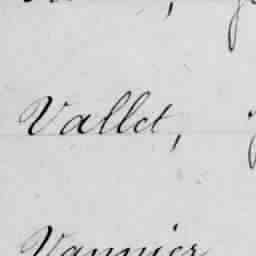 Vallet,
Vannier